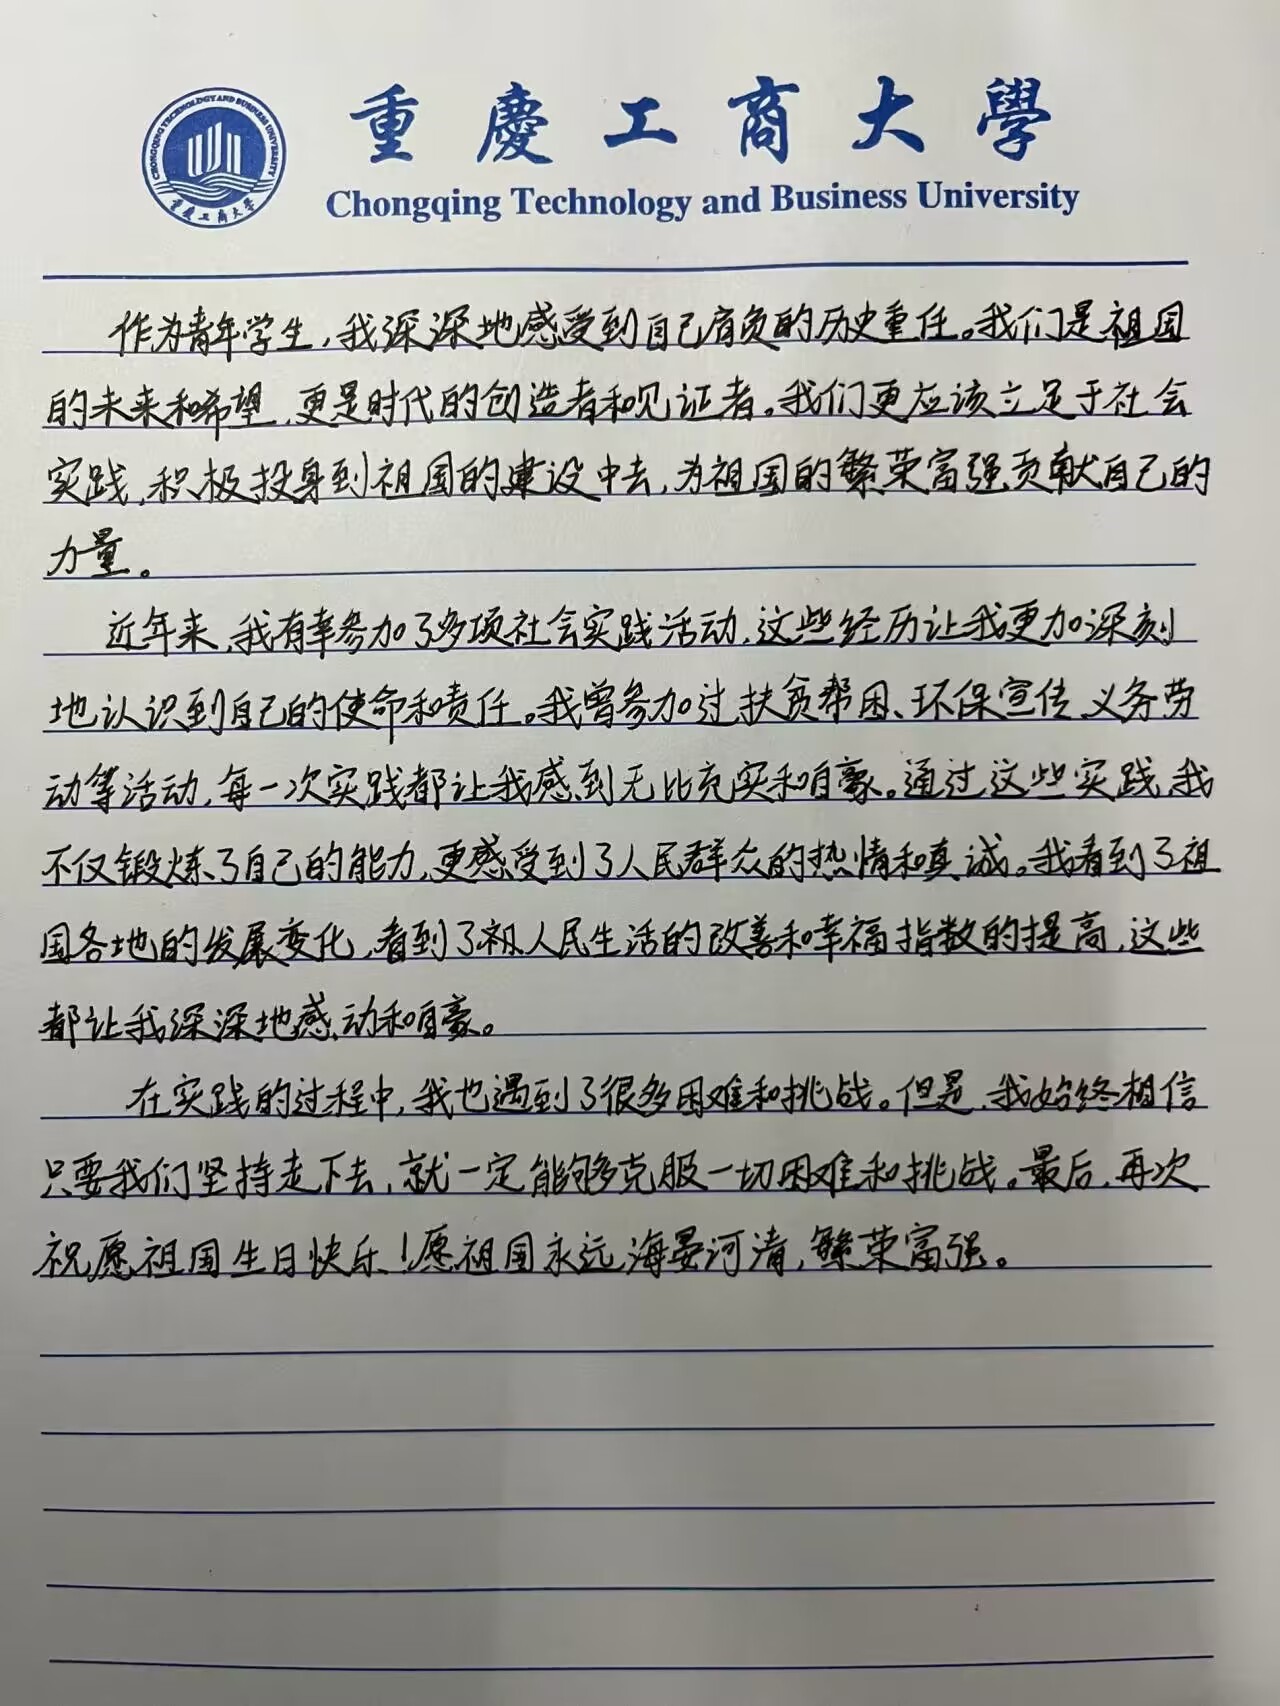 重慶工商大學
Chongqing Technology and Business University
CHONGQING TECHNOLOGY AND BUSINESS UNIVERSITY
重庆工商大学
作为青年学生,我深深地感受到自己肩负的历史重任。我们是祖国
的未来和希望,更是时代的创造者和见证者。我们更应该立足于社会
实践,积极投身到祖国的建设中去,为祖国的繁荣富强贡献自己的
力量。
近年来,我有幸参加了多项社会实践活动,这些经历让我更加深刻
地认识到自己的使命和责任。我曾参加过扶贫帮困、环保宣传、义务劳
动等活动,每一次实践都让我感到无比充实和自豪。通过这些实践,我
不仅锻炼了自己的能力,更感受到了人民群众的热情和真诚。我看到了祖
国各地的发展变化,看到了人民生活的改善和幸福指数的提高,这些
都让我深深地感动和自豪。
在实践的过程中,我也遇到了很多困难和挑战。但是,我始终相信
只要我们坚持走下去,就一定能够克服一切困难和挑战。最后,再次
祝愿祖国生日快乐!愿祖国永远海晏河清,繁荣富强。